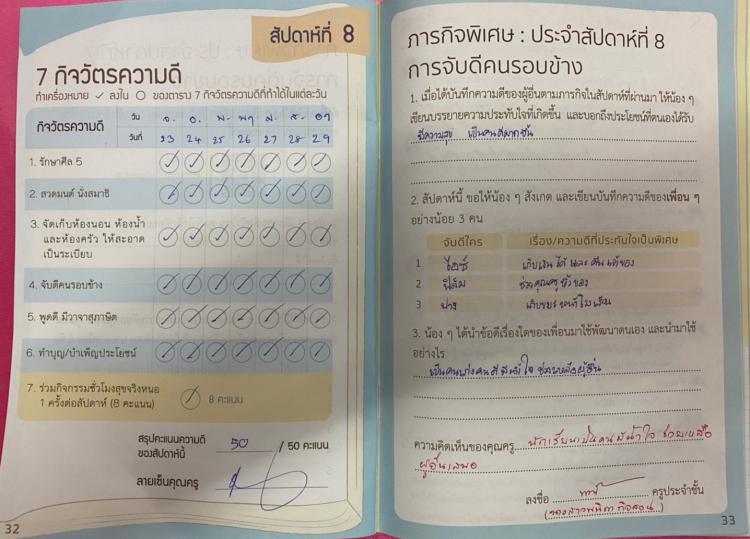 สัปดาห์ที่ 8
7 กิจวัตรความดี
ทำเครื่องหมาย ✓ ลงใน ○ ของตาราง 7 กิจวัตรความดีที่ทำได้ในแต่ละวัน
กิจวัตรความดี วัน จ. อ. พ. พฤ ศ. ส. อา
วันที่ 23 24 25 26 27 28 29
1. รักษาศีล 5 ✓ ✓ ✓ ✓ ✓ ✓ ✓
2. สวดมนต์ นั่งสมาธิ ✓ ✓ ✓ ✓ ✓ ✓ ✓
3. จัดเก็บห้องนอน ห้องน้ำ
และห้องครัว ให้สะอาด ✓ ✓ ✓ ✓ ✓ ✓ ✓
เป็นระเบียบ
4. จับดีคนรอบข้าง ✓ ✓ ✓ ✓ ✓ ✓ ✓
5. พูดดี มีวาจาสุภาษิต ✓ ✓ ✓ ✓ ✓ ✓ ✓
6. ทำบุญ/บำเพ็ญประโยชน์ ✓ ✓ ✓ ✓ ✓ ✓ ✓
7. ร่วมกิจกรรมชั่วโมงสุขจริงหนอ
1 ครั้งต่อสัปดาห์ (8 คะแนน) ✓ 8 คะแนน
สรุปคะแนนความดี
ของสัปดาห์นี้ 50 / 50 คะแนน
ลายเซ็นคุณครู
32
ภารกิจพิเศษ : ประจำสัปดาห์ที่ 8
การจับดีคนรอบข้าง
1. เมื่อได้บันทึกความดีของผู้อื่นตามภารกิจในสัปดาห์ที่ผ่านมา ให้น้อง ๆ
เขียนบรรยายความประทับใจที่เกิดขึ้น และบอกถึงประโยชน์ที่ตนเองได้รับ
มีความสุข เป็นคนดีมากขึ้น
2. สัปดาห์นี้ ขอให้น้อง ๆ สังเกต และเขียนบันทึกความดีของเพื่อน ๆ
อย่างน้อย 3 คน
จับดีใคร เรื่อง/ความดีที่ประทับใจเป็นพิเศษ
1 ไอซ์ เก็บเงินได้ และ คืน เจ้าของ
2 ฟิล์ม ช่วยคุณครู ของ
3 ฟาง เก็บ ให้เพื่อน
3. น้อง ๆ ได้นำข้อดีเรื่องใดของเพื่อนมาใช้พัฒนาตนเอง และนำมาใช้
อย่างไร
เป็นคน คนดี มีน้ำใจ ช่วยเหลือผู้อื่น
ความคิดเห็นของคุณครู นักเรียนเป็นคนมีน้ำใจ ช่วยเหลือ
ผู้อื่นเสมอ
ลงชื่อ ครูประจำชั้น
33